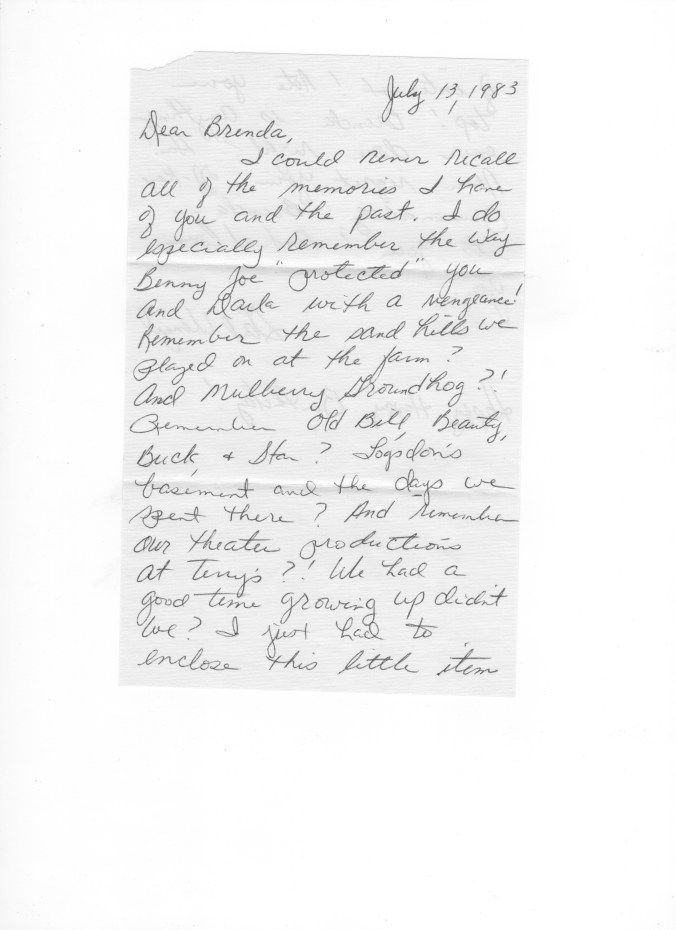 July 13, 1983
Dear Brenda,
I could never recall
all of the memories I have
of you and the past. I do
especially remember the way
Benny Joe "protected" you
and Darla with a vengeance!
Remember the sand hills we
played on at the farm?
And Mulberry Groundhog?!
Remember Old Bill, Beauty,
Buck, & Star? Logsdon's
basement and the days we
spent there? And remember
our theater productions
at Terry's?! We had a
good time growing up didn't
we? I just had to
enclose this little item